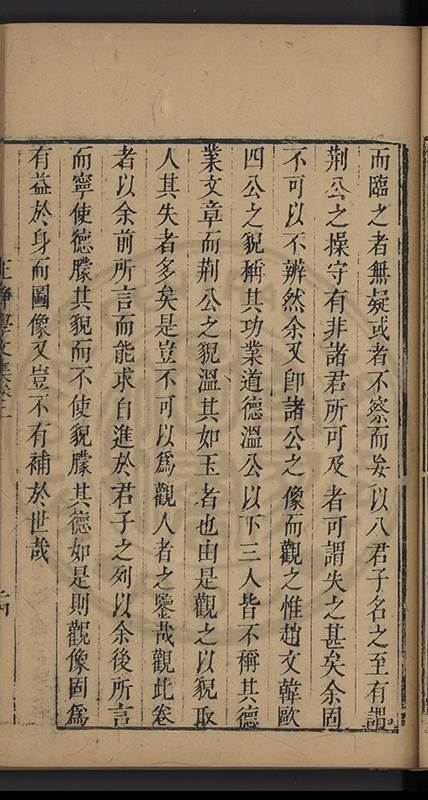 而臨之者無疑或者不察而妄以八君子名之至有謂
荆公之操守有非諸君所可及者可謂失之甚矣余固
不可以不辨然余又卽諸公之像而觀之惟趙文韓歐
四公之貌稱其功業道德溫公以下三人皆不稱其德
業文章而荆公之貌溫其如玉者也由是觀之以貌取
人其失者多矣是豈不可以爲觀人者之鑒哉觀此卷
者以余前所言而能求自進於君子之列以余後所言
而寧使德朦其貌而不使貌朦其德如是則觀像固爲
有益於身而圖像又豈不有補於世哉